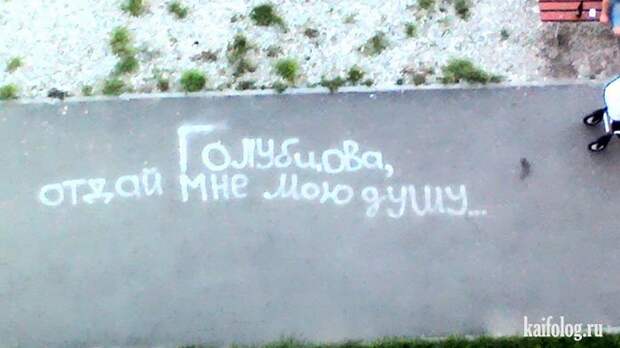 Голубцова,
отдай мне мою душу...
kaifolog.ru